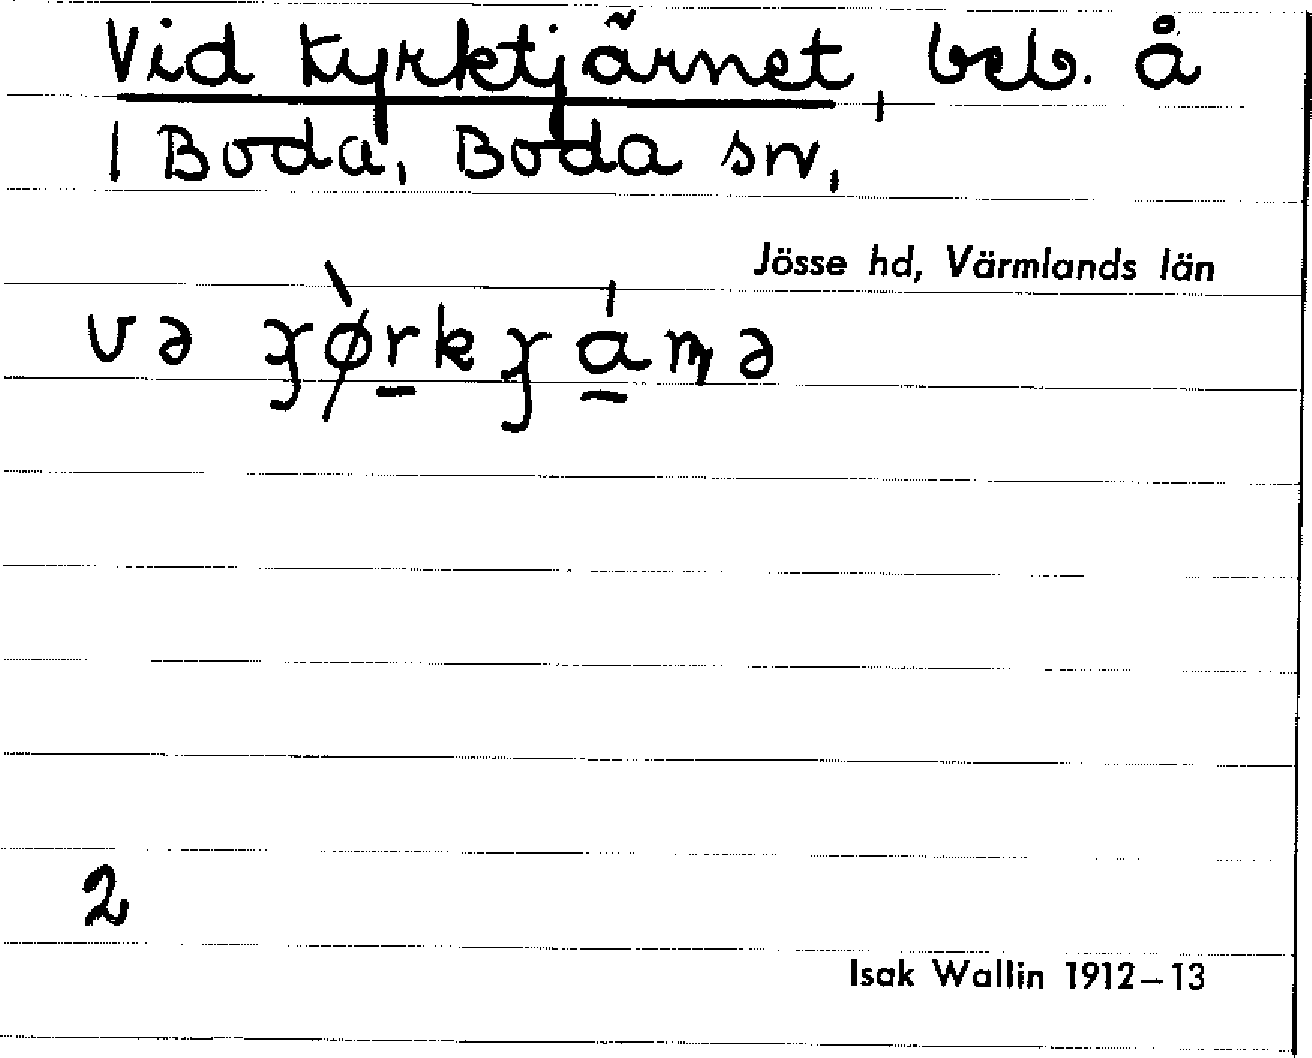 Vid Kyrktjärnet, beb. å
1 Boda, Boda sn,
Jösse hd, Värmlands län
və
2
Isak Wallin 1912–13